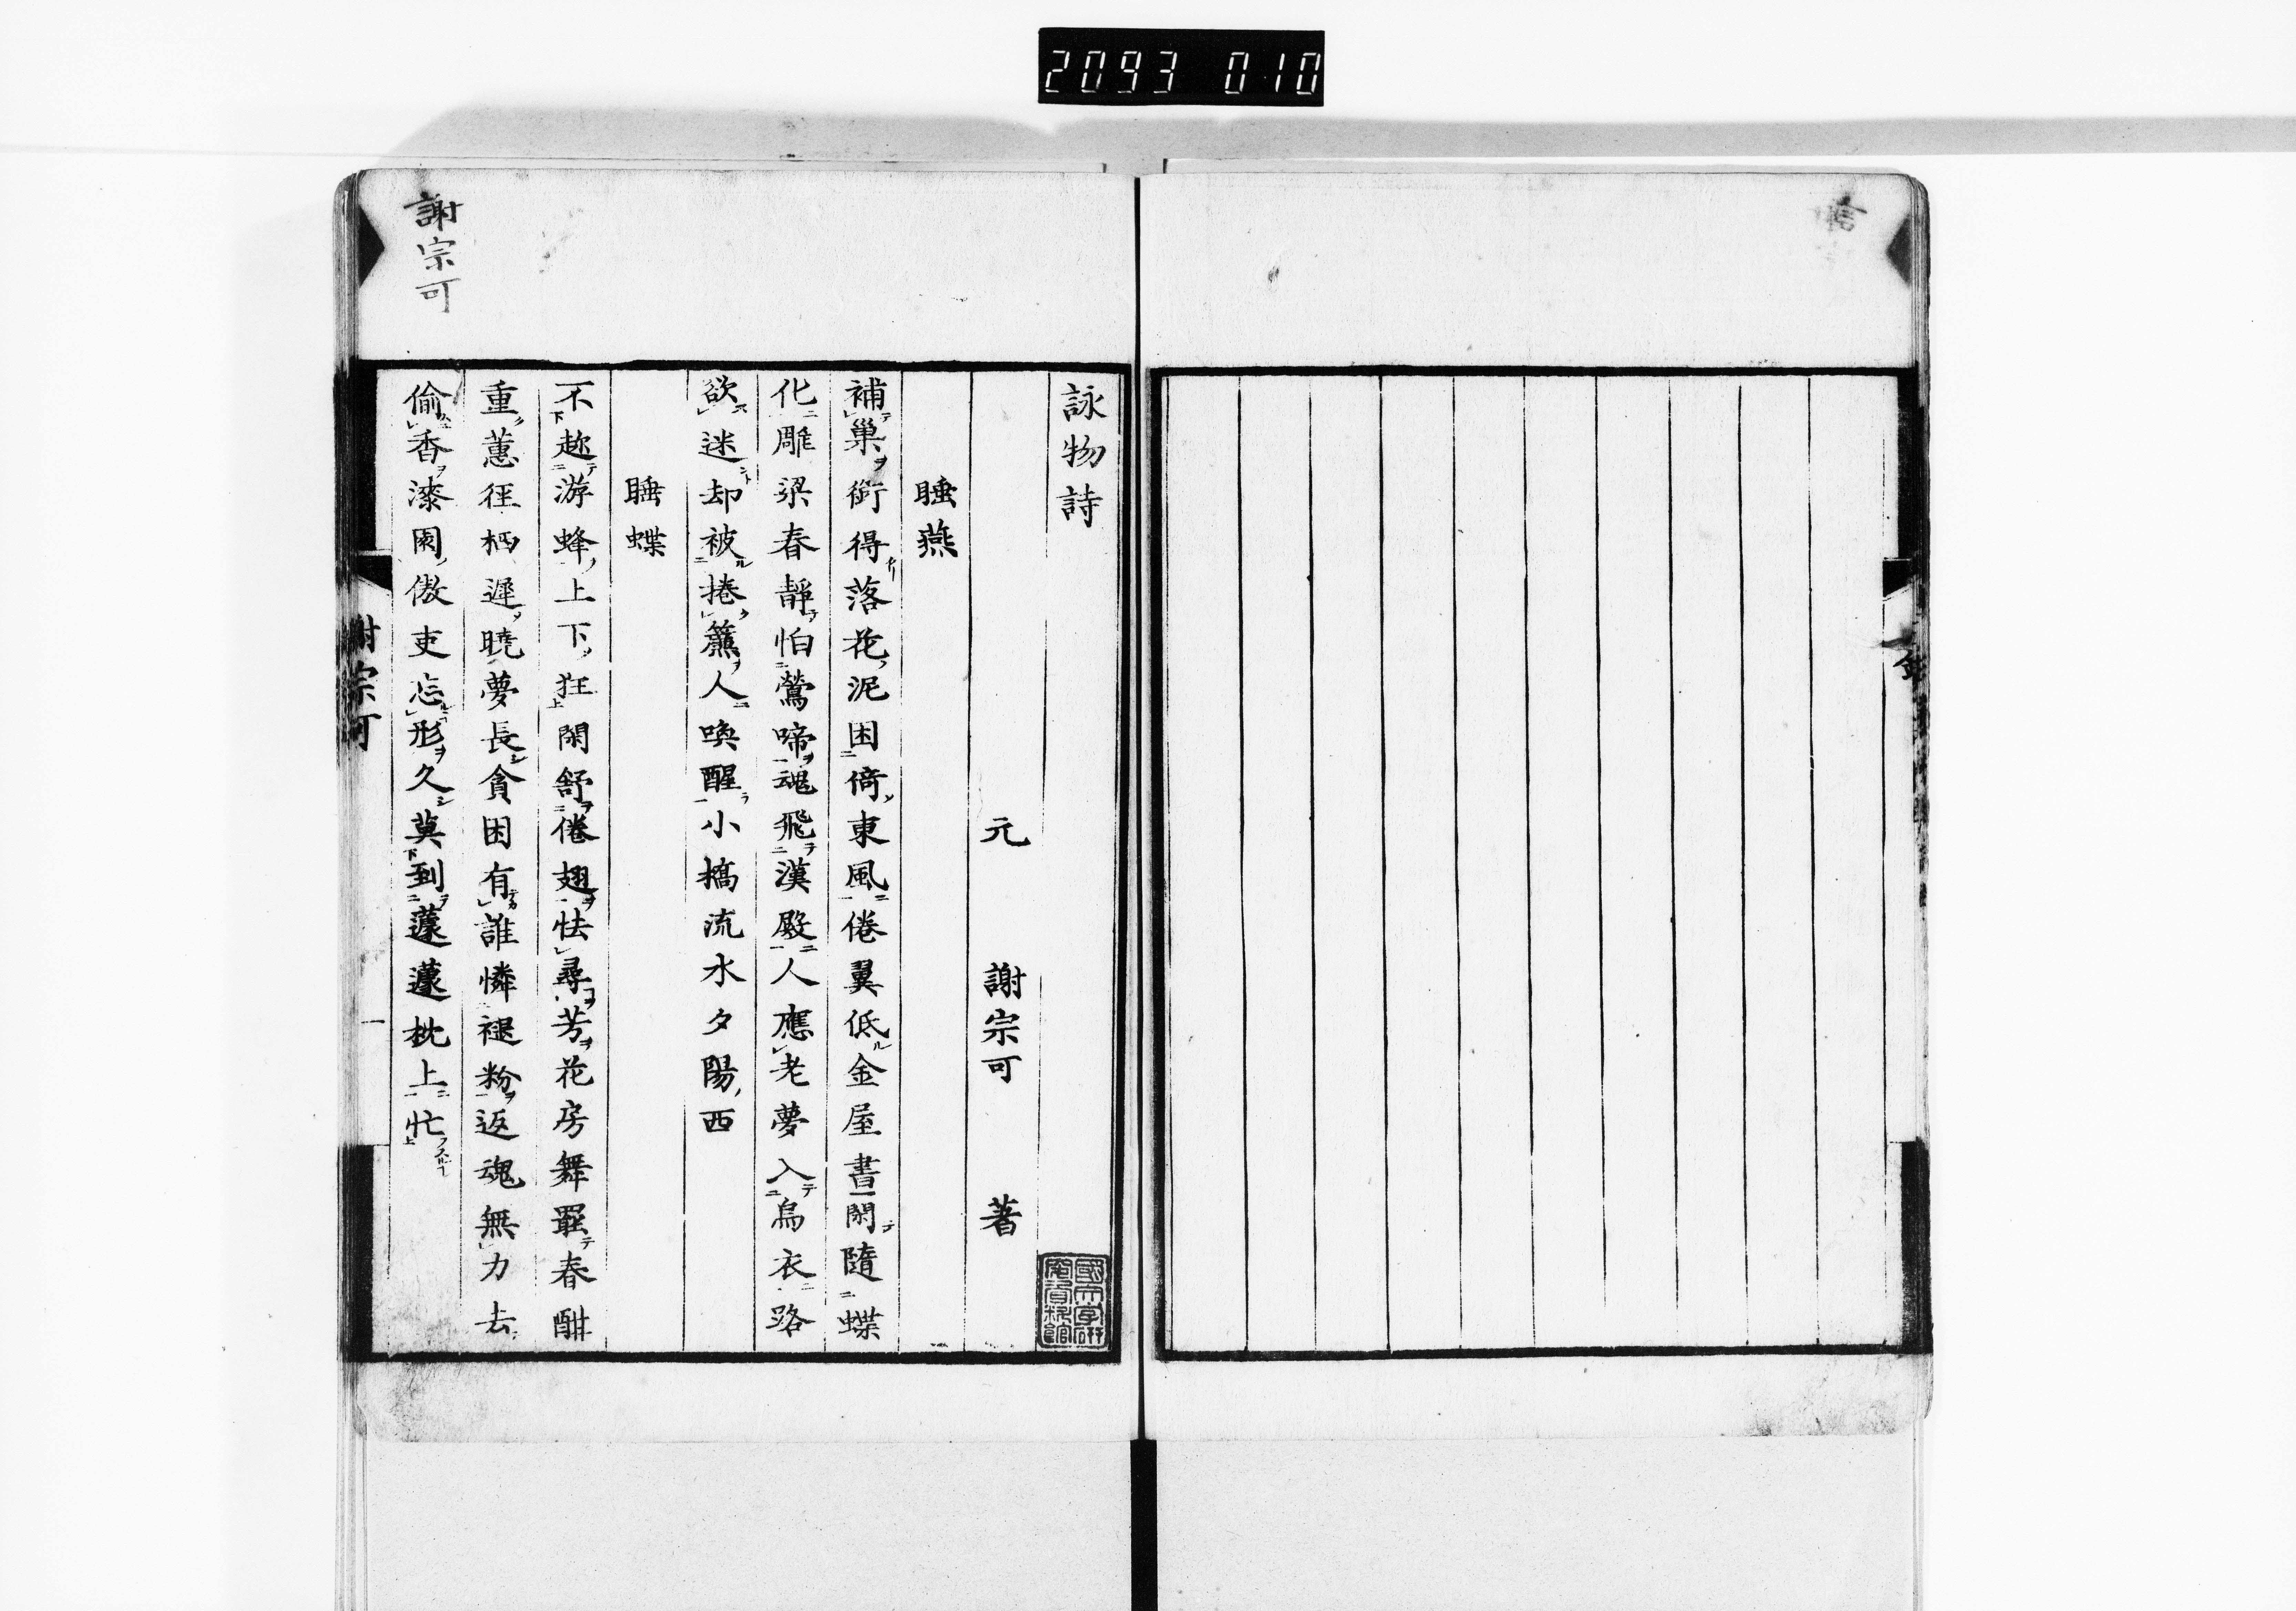 2093 010
詠物詩
元 謝宗可 著
睡燕
補巣銜得落花泥困倚東風倦翼低金屋晝閑隨蝶
化雕梁春靜怕鶯啼魂飛漢殿人應老夢入烏衣路
欲迷却被捲簾人喚醒小橋流水夕陽西
睡蝶
不趂游蜂上下狂閑舒倦翅怯尋芳花房舞罷春酣
重蕙徑栖遲曉夢長貪困有誰憐褪粉返魂無力去
偷香漆園傲吏忘形久莫到蘧蘧枕上忙
謝宗可
謝宗可
一